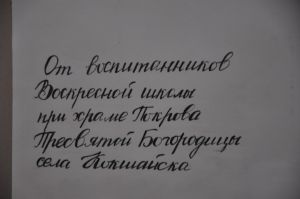 От воспитанников
Воскресной школы
при храме Покрова
Пресвятой Богородицы
села Кокшайска